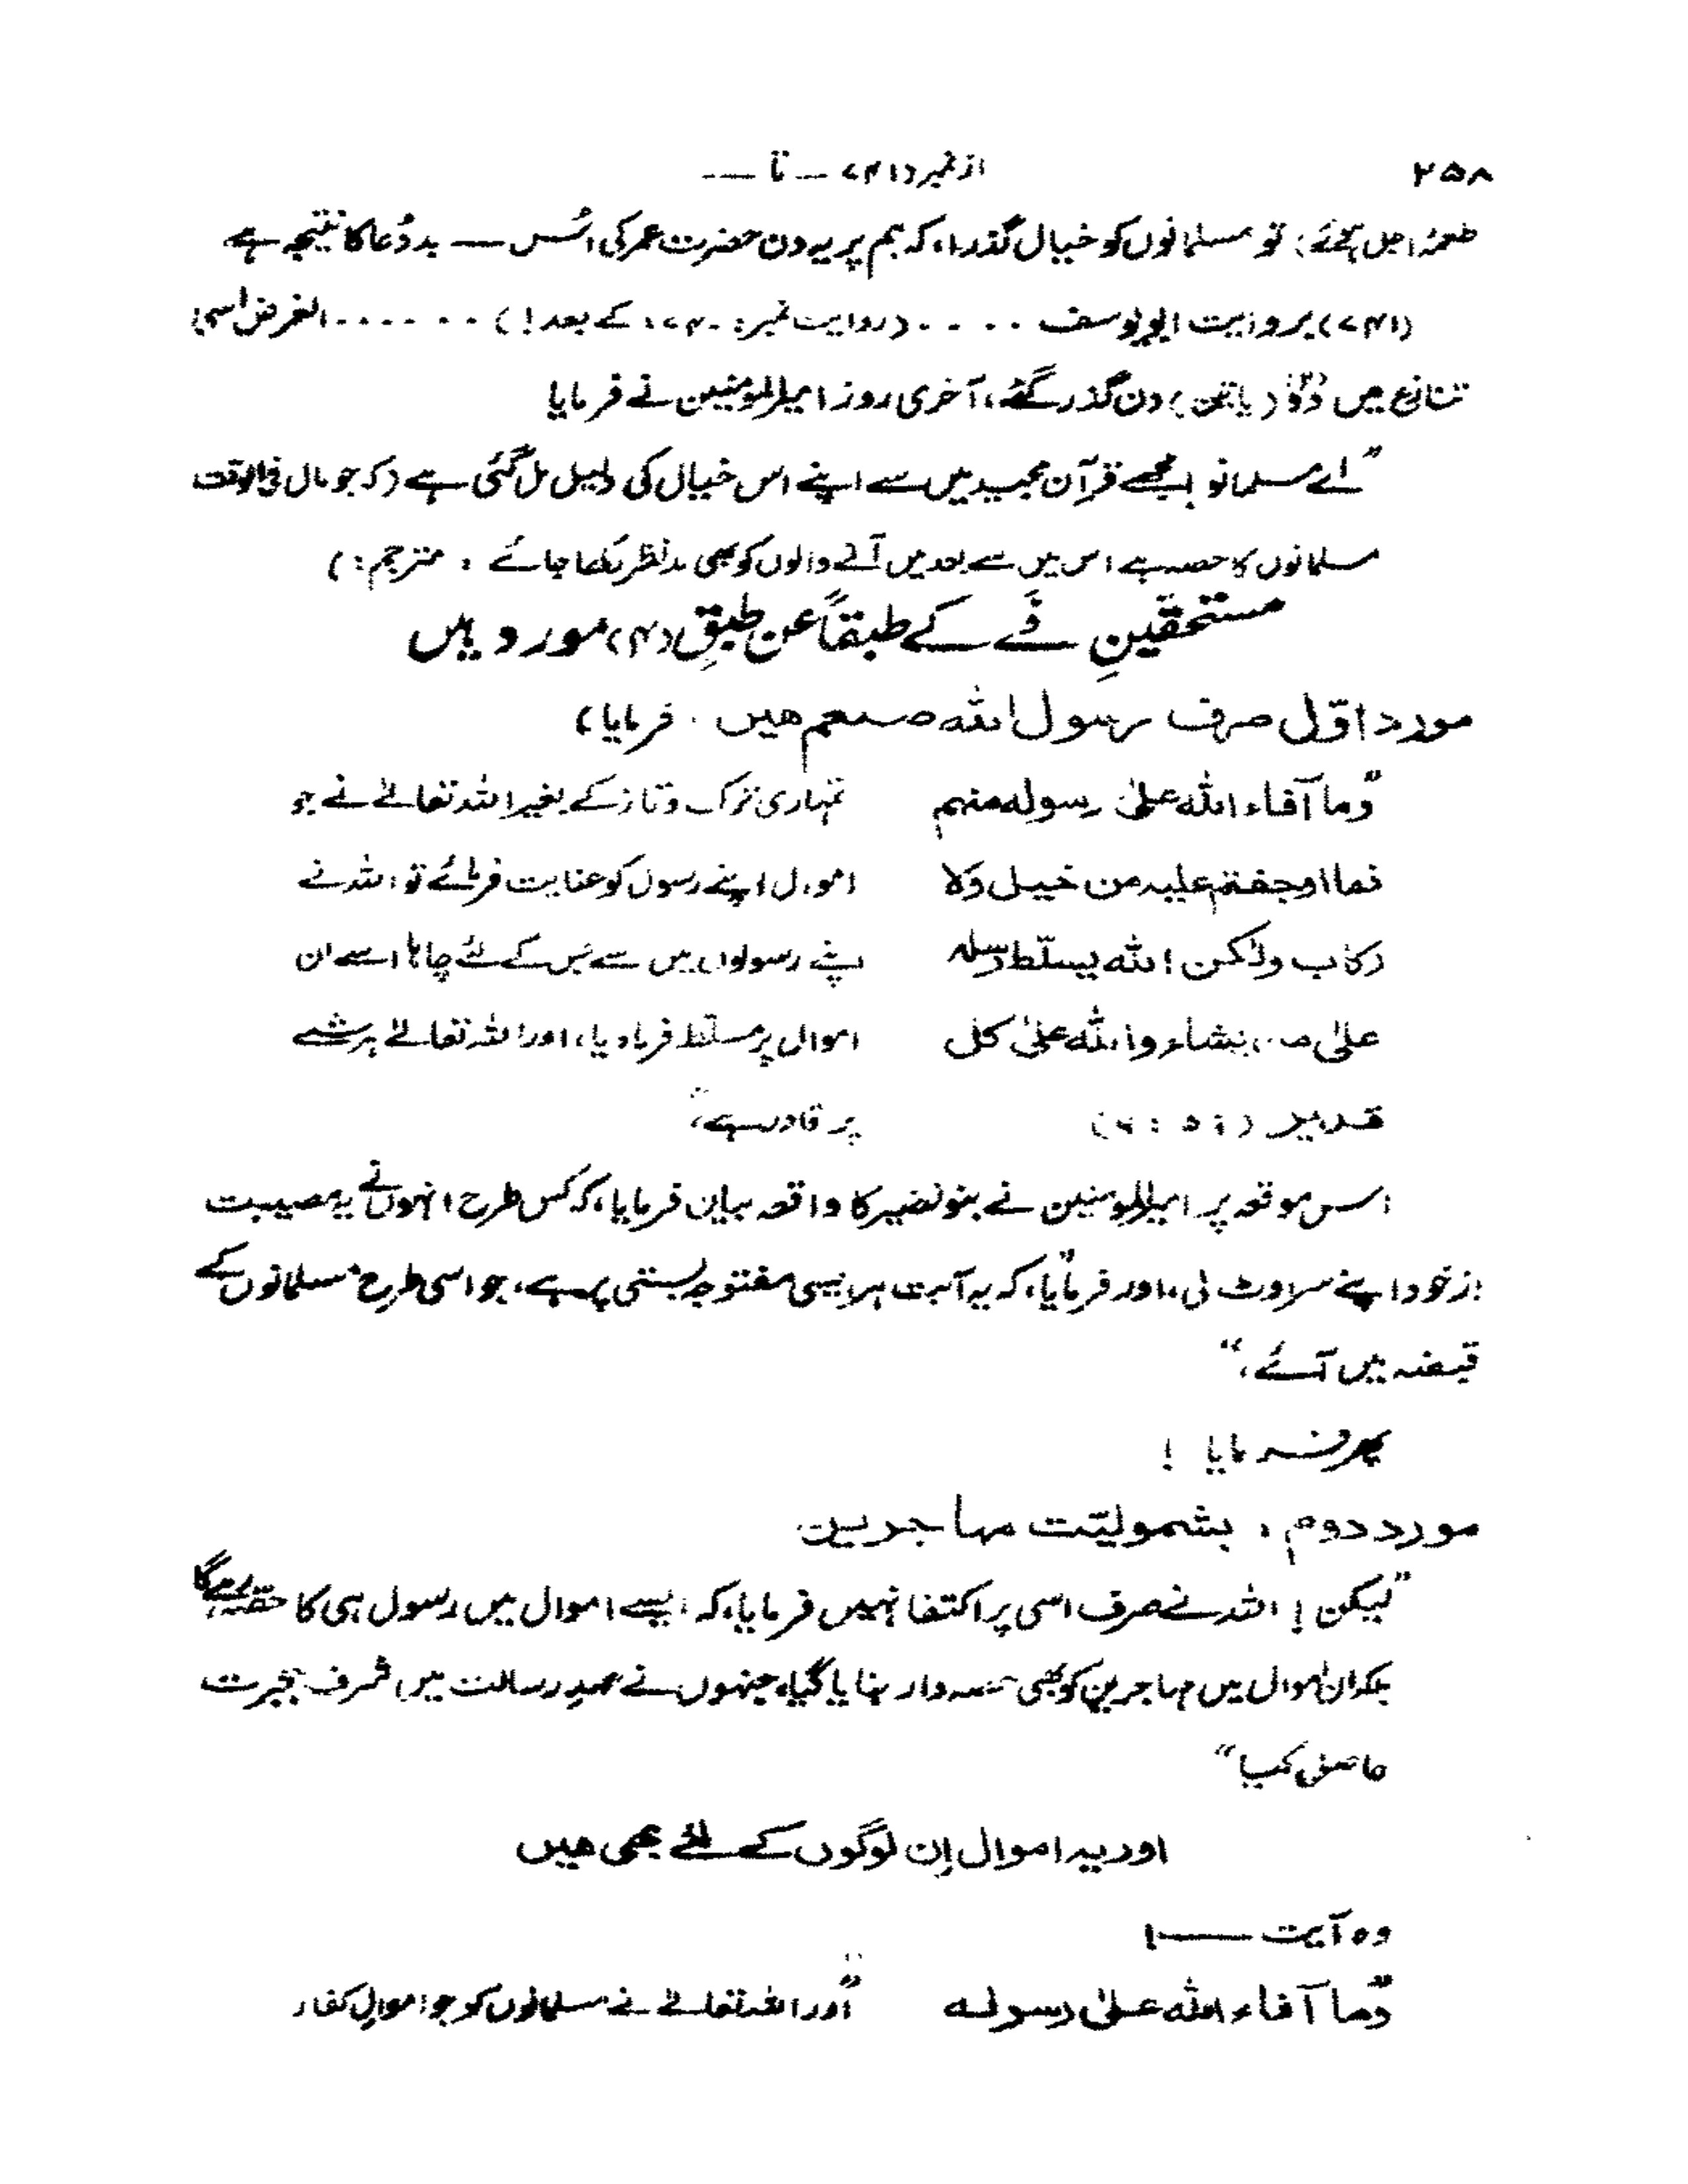 ۲۵۸
از نمبر (۷۴۱ — تا — —
اجل ہوئے) تو مسلمانوں کو خیال گذرا، کہ ہم پر یہ دن حضرت عمر کی اُس — بددُعا کا نتیجہ ہے
(۷۴۱) بروایت ابو یوسف . . . . (روایت نمبر: ۷۴۰ کے بعد!) . . . . . . الغرض اسی
تنازع میں دو (یا تین) دن گذر گئے، آخری روز امیرالمومنین نے فرمایا
"اے مسلمانو! مجھے قرآن مجید میں سے اپنے اس خیال کی دلیل مل گئی ہے (کہ جو مال فی الوقت
مسلمانوں کا حصہ ہے اس میں سے بعد میں آنے والوں کو بھی مدنظر رکھا جائے، مترجم:)
مستحقینِ فَے کے طبقاً عن طبقٍ (۴) مورد ہیں
مورد اوّل صرف رسول اللہ صلعم ہیں . فرمایا)
"وما آفاء اللہ علیٰ رسولہ منہم
تمہاری ترک و تاز کے بغیر اللہ تعالےٰ نے جو
فما اوجفتم علیہ من خیل ولا
اموال اپنے رسول کو عنایت فرمائے تو اللہ نے
رکاب ولٰکن اللہ یسلّط رسلہ
اپنے رسولوں میں سے جس کے لئے چاہا اسے ان
علیٰ من یشاء واللہ علیٰ کل
اموال پر مسلّط فرما دیا، اور اللہ تعالےٰ ہر شے
قدیر (۵۹ : ۶)
پر قادر ہے"
اس موقعہ پر امیرالمومنین نے بنو نضیر کا واقعہ بیان فرمایا، کہ کس طرح انہوں نے یہ مصیبت
از خود اپنے سر اوٹ لی، اور فرمایا، کہ یہ آیت ہر ایسی مفتوحہ بستی پر ہے، جو اسی طرح مسلمانوں کے
قبضہ میں آئے،"
پھر فرمایا !
مورد دوم ، بشمولیّت مہاجرین
"لیکن! اللہ نے صرف اسی پر اکتفا نہیں فرمایا، کہ ایسے اموال میں رسول ہی کا حصّہ رہیگا
بلکہ ان اموال میں مہاجرین کو بھی حصہ دار بنایا گیا، جنہوں نے عہدِ رسالت میں شرف ہجرت
حاصل کیا"
اور یہ اموال اِن لوگوں کے لئے بھی ہیں
وہ آیت —!
"وما آفاء اللہ علیٰ رسولہ
"اور اللہ تعالےٰ نے مسلمانوں کو جو اموالِ کفار